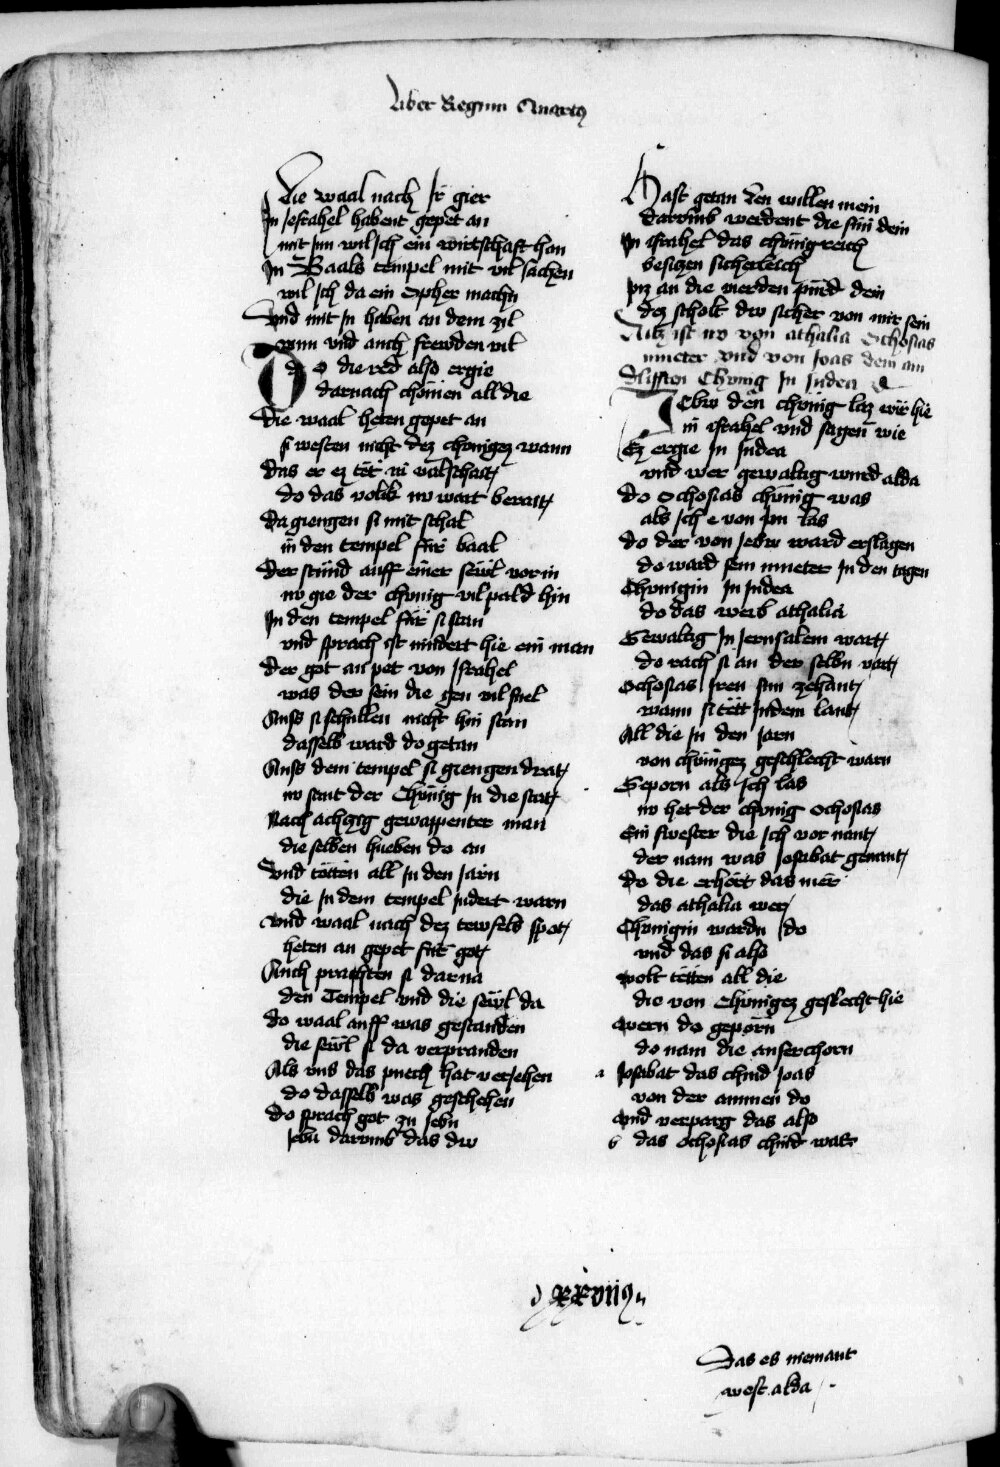 Liber Regum Quartus
Die waal nach Ir gier
In Jsrahel habent gepet an
mit inn wil Jch ein wirtschaft han
In Baals tempel mit vil sachen
wil Jch da ein Opher machn
Vnd mit In haben an dem zil
wun vnd auch frewden vil
Do die red also ergie
darnach chomen all die
Die waal heten gepet an
si westen nicht dez chönigez wann
Das er ez tët in valschait
do das volk nw wart berait
Da giengen si mit schal
in den tempel für baal
Der stünd auff einer sewl vorin
nw gie der chönig vil pald hin
In den tempel für si stan
vnd sprach ist nindert hie ein man
Der got an pet von Jsrahel
was der sein die gen vil snel
Auss si schullen nicht hin stan
dasselb ward do getan
Auss dem tempel si giengen drat
nw sant der Chönig In die stat
Nach achzig gewappenter man
die selben hueben do an
Vnd tötten all In den Jarn
die In dem tempel Indert warn
Vnd waal nach dez tewfels spot
heten an gepet für got
Auch prachten si darna
den Tempel vnd die sewl da
Do waal auff was gestanden
die sewl si da verpranden
Als vns das puech hat veriehen
do dasselb was geschehen
Do sprach got zu Jehu
Jehu darumb das dw
Hast getan den willen mein
darumb werdent die sün dein
In israhel das chönigreich
besiczen sicherleich
Piz an die vierden pürd dein
dez scholt dw sicher von mir sein
Nw ist nw von athalia Ochosias
mueter vnd von Joas dem am
Ailfften Chönig In Judea
Jehw den chönig laz wir hie
in israhel vnd sagen wie
Ez ergie In Judea
vnd wer gewaltig würd alda
Do Ochosias chönig was
als Jch e von Im las
Do der von Jehw ward erslagen
do ward sein mueter In den tagen
Chönigin In Judea
do das weib athalia
Gewaltig In Jerusalem wart
do rach si an der selbn vart
Ochosias Iren sun zehant
wann si tött In dem lant
All die In den Jarn
von chönigez geschlecht warn
Geporn als Jch las
nw het der chönig Ochosias
Ein swester die Jch vor nant
der nam was Josabat genant
Do die erhört das mer
das athalia wer
Chönigin wardn do
vnd das si also
wolt tötten all die
die von Chönigez geslecht hie
Wern do geporn
do nam die auserchorn
a Josabat das chind Joas
von der ammen do
Vnd verparg das also
b das Ochosias chind was
Das es niemant
west alda